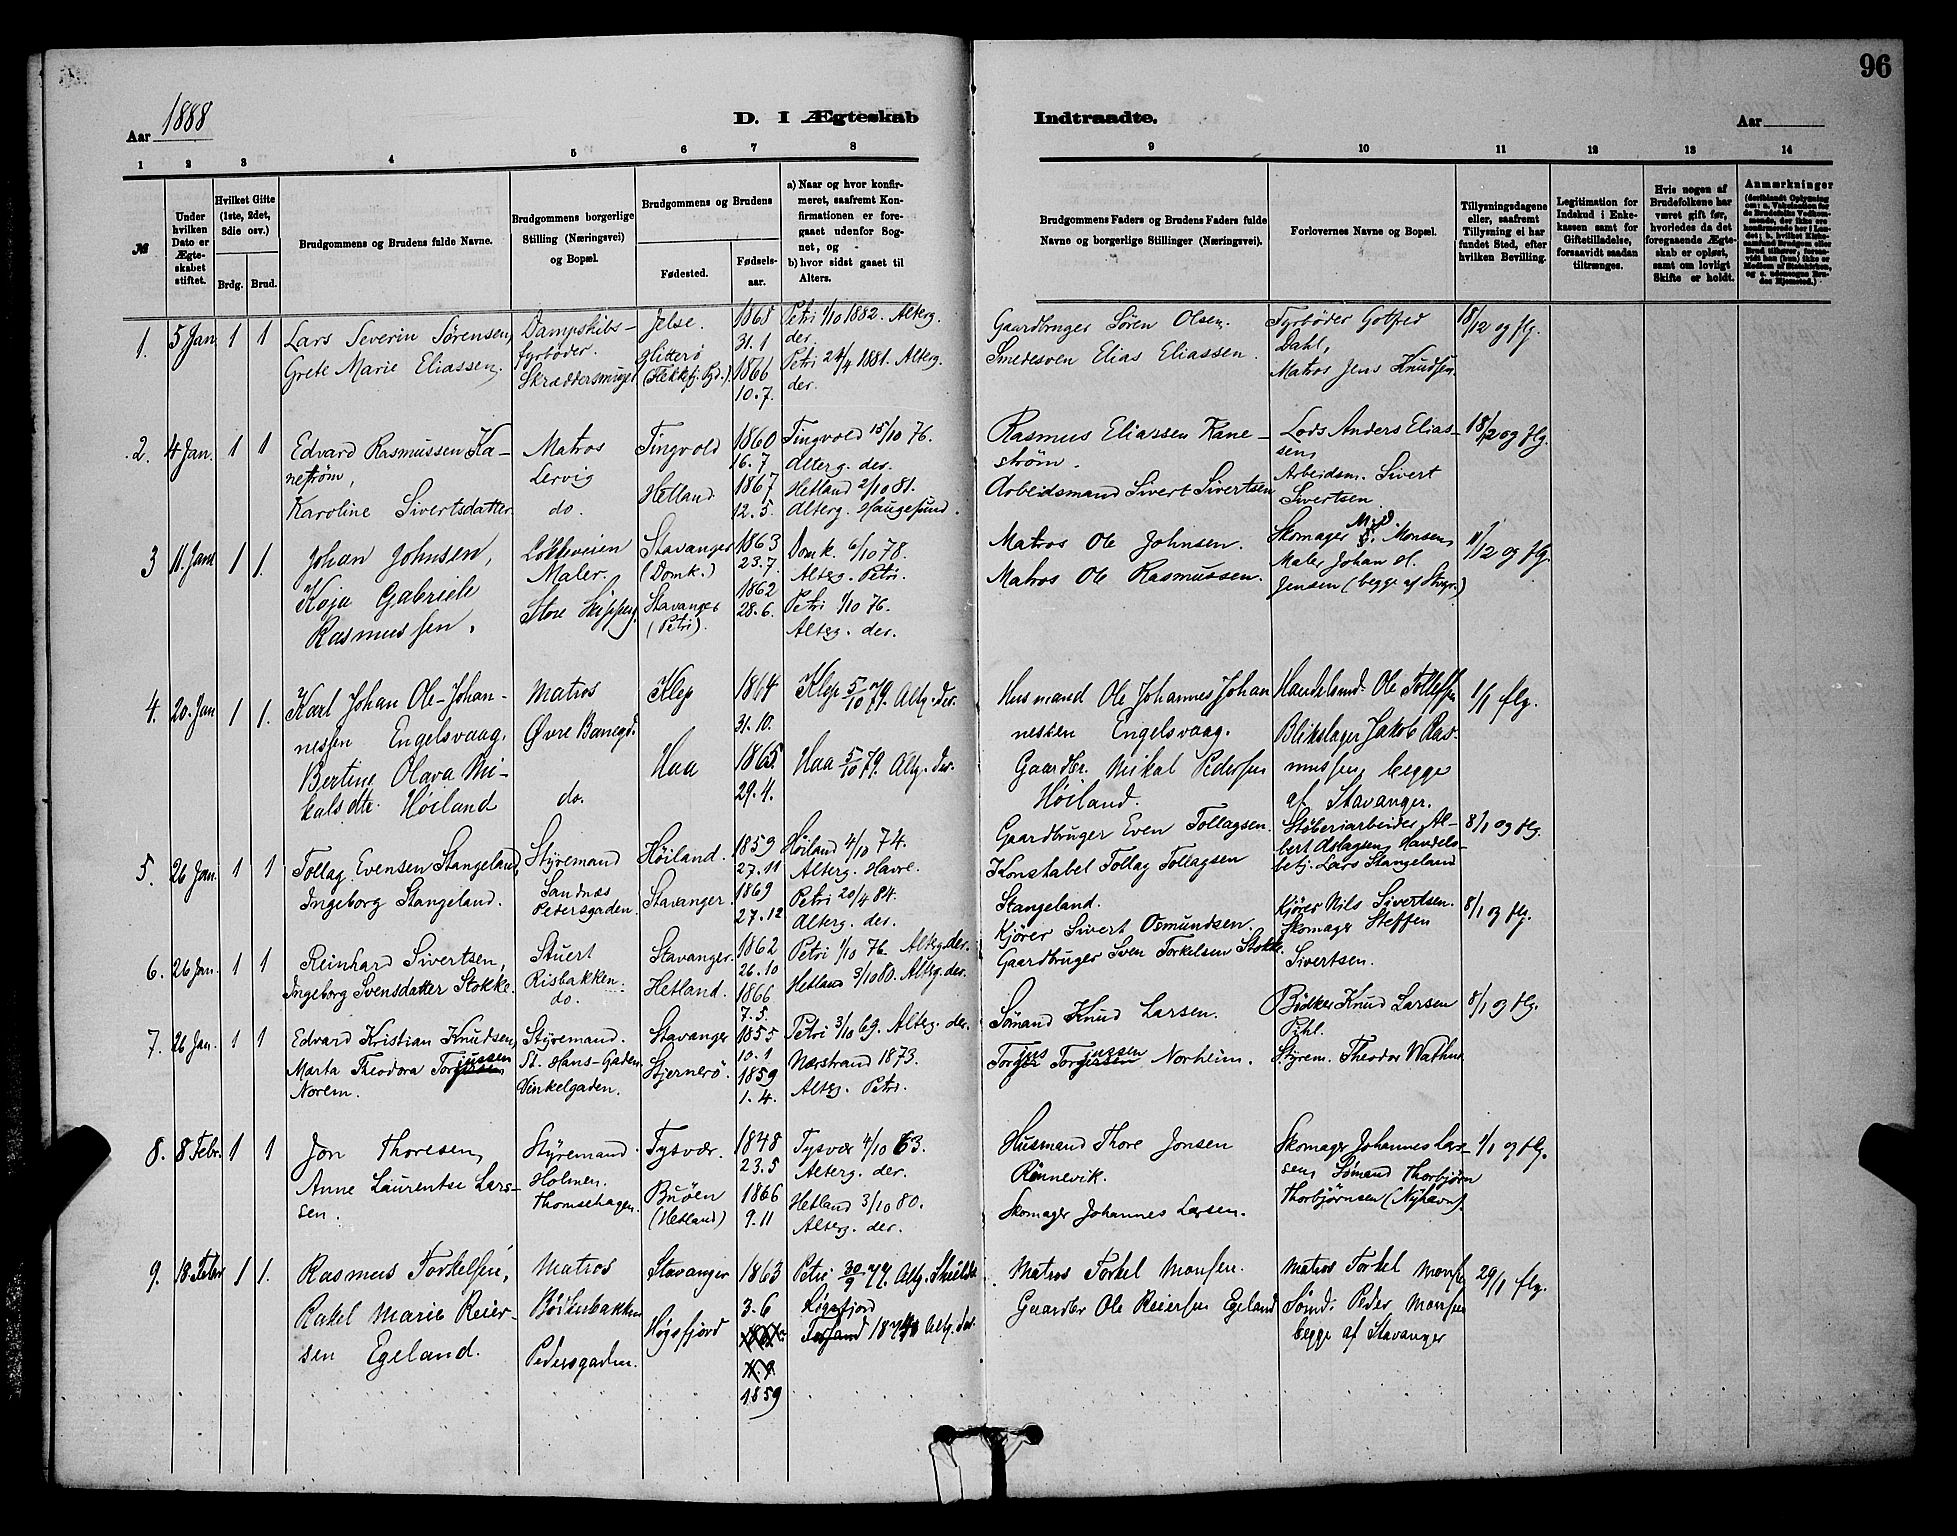 96
Aar 1888
D. I Ægteskab
Indtraadte.
Aar
1 2 3 4 5 6 7 8 9 10 11 12 13 14
№
Under
hvilken
Dato er
Ægte-
skabet
stiftet.
Hvilket Gifte
(1ste, 2det,
3die osv.)
Brdg. Brud.
Brudgommens og Brudens fulde Navne.
Brudgommens borgerlige
Stilling (Næringsvei)
og Bopæl.
Brudgommens og Brudens
Fødested.
Fødsels-
aar.
a) Naar og hvor konfir-
meret, saafremt Kon-
firmationen er fore-
gaaet udenfor Sog-
net, og
b) hvor sidst gaaet til
Alters.
Brudgommens Faders og Brudens Faders fulde
Navne og borgerlige Stillinger (Næringsvei).
Forlovernes Navne og Bopæl.
Tillysningsdagene
eller, saafremt
Tillysning ei har
fundet Sted, efter
hvilken Bevilling.
Legitimation for
Indskud i Enke-
kassen samt for
Giftetilladelse,
forsaavidt saadan
tiltrænges.
Hvis nogen af
Brudefolkene har
været gift før,
hvorledes da det
foregaaende Ægte-
skab er opløst,
samt om lovligt
Skifte er holdt.
Anmærkninger
1. 5 Jan 1 1
Lars Severin Sørensen,
Grete Marie Eliassen,
Dampskibs-
fyrbøder.
Skræddersmuget
Jelse.
Hitterø
(Flekkefj. Pgd.)
1868
31.1
1866
10.7.
Petri 1/10 1882. Alterg.
der.
Petri 24/4 1881. Alterg.
der.
Gaardbruger Sören Olsen.
Smedesven Elias Eliassen.
Fyrbøder Gotfred
Dahl,
Matros Jens Knudsen.
18/12 og flg.
2. 4 Jan. 1 1
Edvard Rasmussen Ka-
nestrøm,
Karoline Sivertsdatter
Matros
Lervig
do.
Tingvold
Hetland
1860
16.7
1867
12.5.
Tingvold 15/10 76.
Alterg. der.
Hetland 2/10 81.
Alterg. Haugesund.
Rasmus Eliassen Kane-
strøm.
Arbeidsmand Sivert Sivertsen
Lods Anders Elias-
sen,
Arbeidsm. Sivert
Sivertsen
18/12 og flg.
3 11. Jan 1 1.
Johan Johnsen,
Kaja Gabriele
Rasmussen.
Løkkeveien
Maler.
Store Skipperg.
Stavanger
(Domk.)
Stavanger
(Petri).
1863
23.7.
1862
28.6.
Domk. 6/10 78.
Alterg. Petri.
Petri 1/10 76.
Alterg. der.
Matros Ole Johnsen.
Matros Ole Rasmussen.
Skomager Monsen,
Maler Johan
Jensen (begge af Stvgr.)
11/12 og flg.
4. 20. Jan 1 1.
Karl Johan Ole-Johan-
nessen Engelsvaag.
Bertine Olava Mi-
kalsdtr. Høiland
Matros
Øvre Banegd.
do.
Klep
Haa
1864
31.10.
1865.
29.4.
Klep 5/10 79. Altg. der.
Haa 5/10 79. Altg. der.
Husmand Ole Johannes Johan
nessen Engelsvaag.
Gaardbr. Mikal Pedersen
Høiland.
Handelsmd. Ole Tollefsen
Blikslager Jakob Ras-
mussen, begge
af Stavanger.
1/1 flg.
5. 26 Jan. 1 1
Tollag Evensen Stangeland,
Ingeborg Stangeland.
Styremand
Sandnæs
Pedersgaden.
Høiland.
Stavanger.
1859
27.11
1869
27.12
Høiland 4/10 74.
Alterg. Havre.
Petri 20/4 84.
Alterg. der.
Gaardbruger Even Tollagsen.
Konstabel Tollag Tollagsen
Stangeland.
Støberiarbeider Al-
bert Aslagsen, Handels-
betj. Lars Stangeland
8/1 og flg.
6. 26 Jan. 1 1
Reinhard Sivertsen,
Ingeborg Svensdatter Stokke.
Stuert
Risbakken.
do.
Stavanger.
Hetland.
1862
26.10
1866
7.5.
Petri 1/10 76. Alterg. der.
Hetland 3/10 80. Alterg. der.
Kjører Sivert Osmundsen.
Gaardbruger Sven Torkelsen Stokke.
Kjører Nils Sivertsen.
Skomager Steffen
Sivertsen.
8/1 og flg.
7. 26 Jan. 1 1
Edvard Kristian Knudsen,
Marta Theodora Torjussen
Norem.
Styremand.
St. Hans-Gaden.
Vinkelgaden.
Stavanger
Stjernerø.
1855
10.1
1859
1.4.
Petri 3/10 69. Alterg. der.
Nærstrand 1873.
Alterg. Petri.
Sømand Knud Larsen.
Torjus Torjussen Norheim.
Bødker Knud Larsen
Pihl.
Styrem. Theodor Wathne
8/1 og flg.
8. 8 Febr. 1 1
Jon Thoresen,
Anne Laurentse Lars-
sen.
Styremand.
Holmen.
Thomsehagen.
Tysvær.
Buøen
(Hetland)
1848
23.5
1866
9.11
Tysvær 4/10 63.
Alterg. der.
Hetland 3/10 80.
Alterg. der.
Husmand Thore Jonsen
Rønnevik.
Skomager Johannes Larsen.
Skomager Johannes Lar-
sen, Sømand Thorbjørn
Thorbjørnsen (Nyhavn).
1/1 og flg.
9. 18 Febr 1 1.
Rasmus Torkelsen,
Rakel Marie Reier-
sen Egeland.
Matros
Bødkerbakken
Pedersgaden.
Stavanger
Høgsfjord
1863
3.6
1859
Petri 30/9 77. Altg.
Høgsfjord
Altg. der.
Matros Torkel Monsen.
Gaardbr Ole Reiersen Egeland
Matros Torkel Monsen
Sømd. Peder Monsen
begge af Stavanger
29/1 flg.